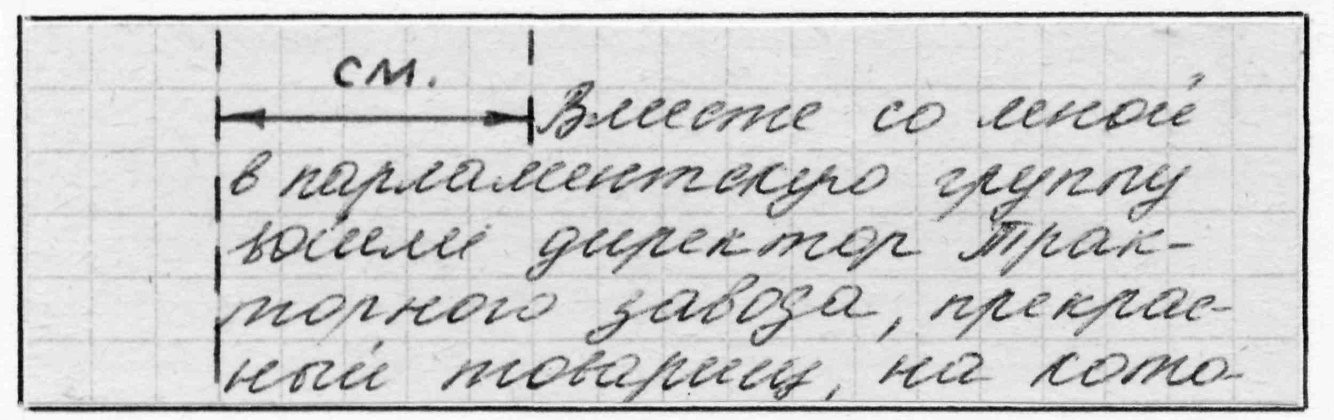 см.
Вместе со мной
в парламентскую группу
вошли директор Трак-
торного завода, прекрас-
ный товарищ, на кото-